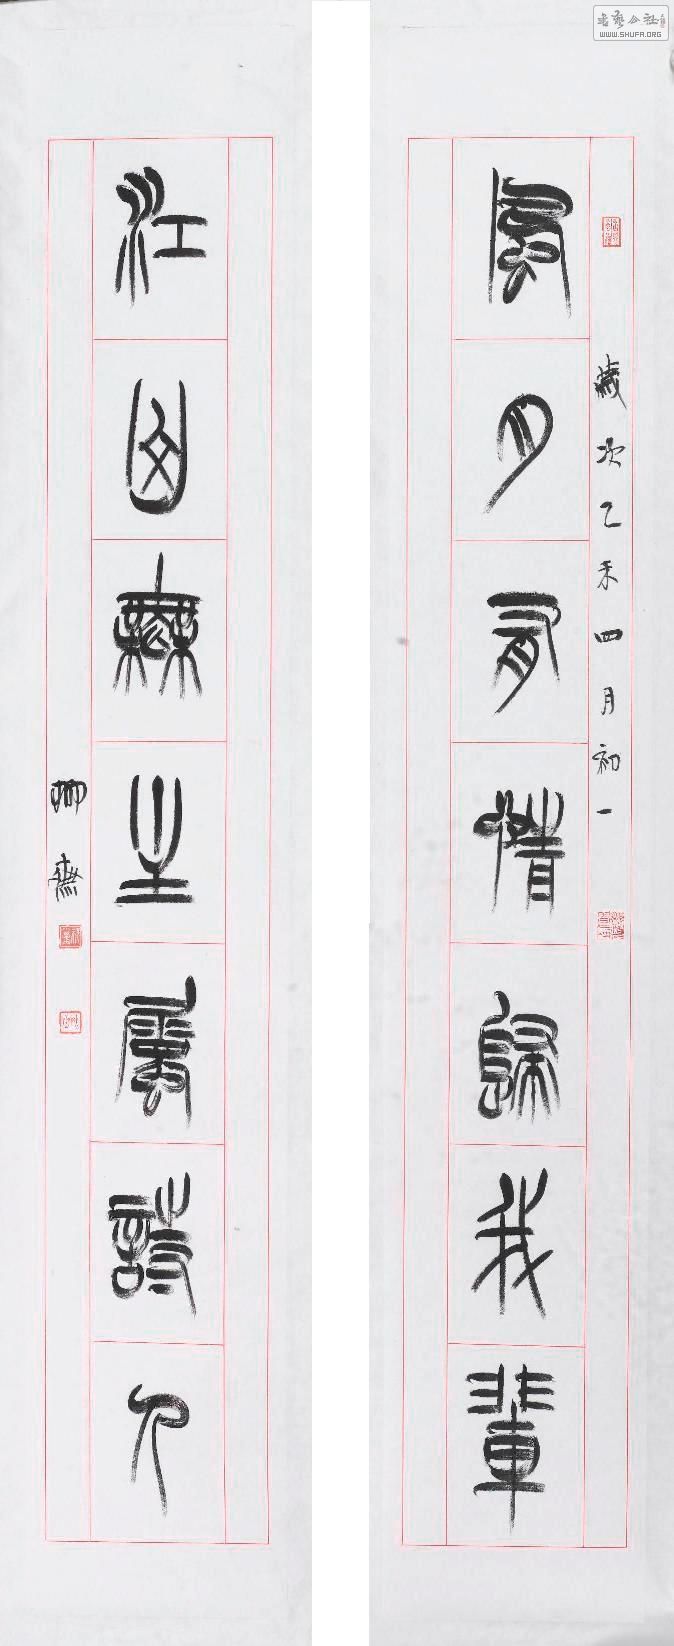 書藝公社
WWW.SHUFA.ORG
歲次乙未四月初一
風月有情歸我輩
江山無主屬詩人